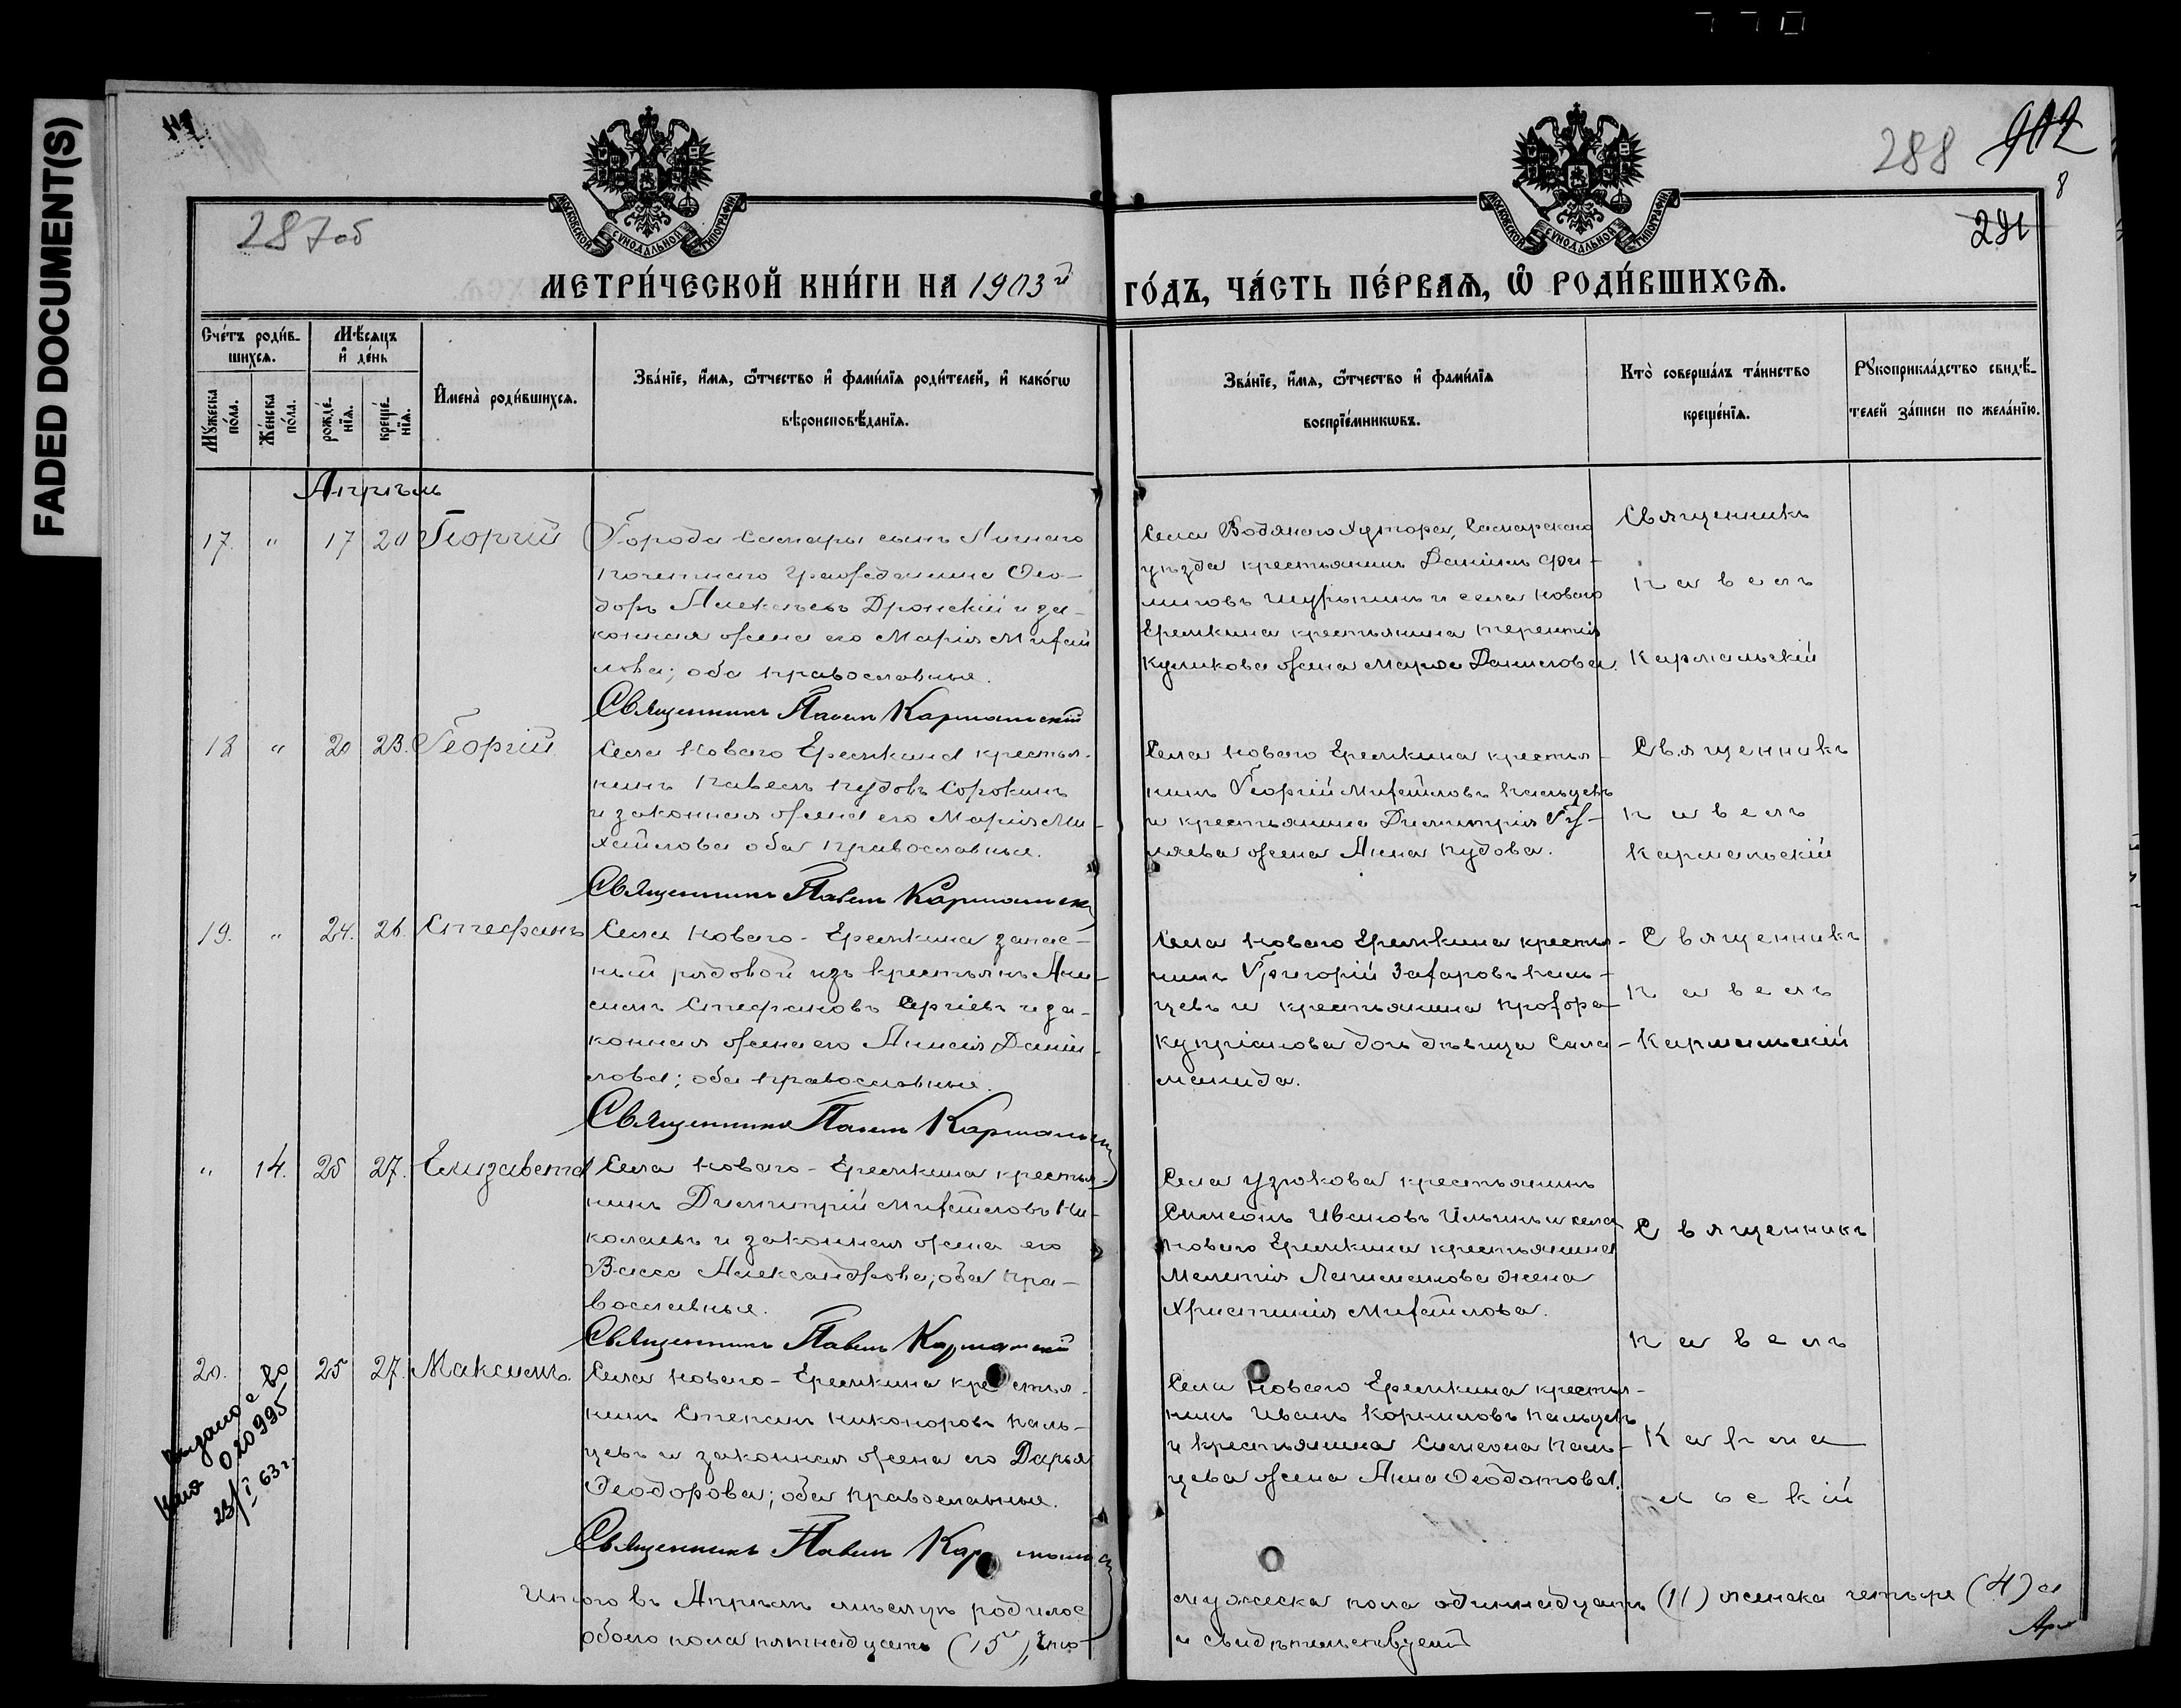 FADED DOCUMENT(S)
287об
288
902
8
291
МОСКОВСКОЙ СѴНОДАЛЬНОЙ ТИПОГРАФІИ
МОСКОВСКОЙ СѴНОДАЛЬНОЙ ТИПОГРАФІИ
МЕТРИ́ЧЕСКОЙ КНИ́ГИ НА 1903й ГО́ДЪ, ЧА́СТЬ ПЕ́РВАѦ, Ѿ РОДИ́ВШИХСѦ.
Сче́тъ роди́вшихсѧ.
Мꙋ́жеска по́ла.
Же́нска по́ла.
Мѣ́сѧцъ и҆ де́нь
рожде́нїѧ.
креще́нїѧ.
И҆мена̀ роди́вшихсѧ.
Зва́нїе, и҆́мѧ, ѻ҆́тчество и҆ фами́лїѧ роди́телей, и҆ како́гѡ
вѣроисповѣ́данїѧ.
Зва́нїе, и҆́мѧ, ѻ҆́тчество и҆ фами́лїѧ
воспрїе́мникѡвъ.
Кто̀ соверша́лъ та́инство
креще́нїѧ.
Рꙋкоприкла́дство свидѣ́-
телей за́писи по жела́нїю.
Апрѣль
17. " 17 20 Георгій
Города Самары сынъ Личнаго
почетнаго гражданина Ѳео-
доръ Алексѣевъ Дронскій и за-
конная жена его Марія Михай
лова; оба православные.
Священникъ Павелъ Кармальскій
Села Водянаго Хутора, Самарскаго
уѣзда крестьянинъ Даніилъ Фи-
липовъ Шурыгинъ и села Новаго
Еремкина крестьянина Терентія
Куликова жена Марѳа Данилова.
Священникъ
Павелъ
Кармальскій
18 " 20 23. Георгій
Села Новаго Еремкина крестья-
нинъ Павелъ Пудовъ Сорокинъ
и законная жена его Марія Ми-
хайлова оба православные.
Священникъ Павелъ Кармальскій
Села Новаго Еремкина крестья-
нинъ Георгій Михайловъ Пальцевъ
и крестьянина Димитрія Гу-
ляева жена Анна Пудова.
Священникъ
Павелъ
Кармальскій
19. " 24. 26. Стефанъ
Села Новаго-Еремкина запас-
ный рядовой изъ крестьянъ Ани-
симъ Стефановъ Сергіевъ и за-
конная жена его Анисія Даніи-
лова; оба православные.
Священникъ Павелъ Кармальскій
Села Новаго Еремкина крестья-
нинъ Григорій Захаровъ Паль-
цевъ и крестьянина Прохора
Купріанова дочь дѣвица Сала-
манида.
Священникъ
Павелъ
Кармальскій
" 14. 25 27. Елизавета
Села Новаго-Еремкина крестья-
нинъ Димитрій Михайловъ Ни-
колаевъ и законная жена его
Васса Александрова; оба пра-
вославные.
Священникъ Павелъ Кармальскій
Села Узюкова крестьянинъ
Симеонъ Ивановъ Ильинъ и села
Новаго Еремкина крестьянина
Мелетія жена
Христинія Михайлова.
Священникъ
Павелъ
20. 25 27. Максимъ.
Села Новаго-Еремкина крестья-
нинъ Степанъ Никоноровъ Паль-
цевъ и законная жена его Дарья
Ѳеодорова; оба православные.
Священникъ Павелъ Кармальскій
Села Новаго Еремкина крестья-
нинъ Иванъ Корниловъ Пальцевъ
и крестьянина Симеона Паль-
цева жена Анна Ѳеодотова.
Карма
льскій
Выдано с во
020995
23/I 63 г.
Итого въ Апрѣлѣ мѣсяцѣ родилос
обоего пола пятнадцать (15),
мужеска пола одиннадцать (11) женска четыре (4)
и свидѣтельствуемъ